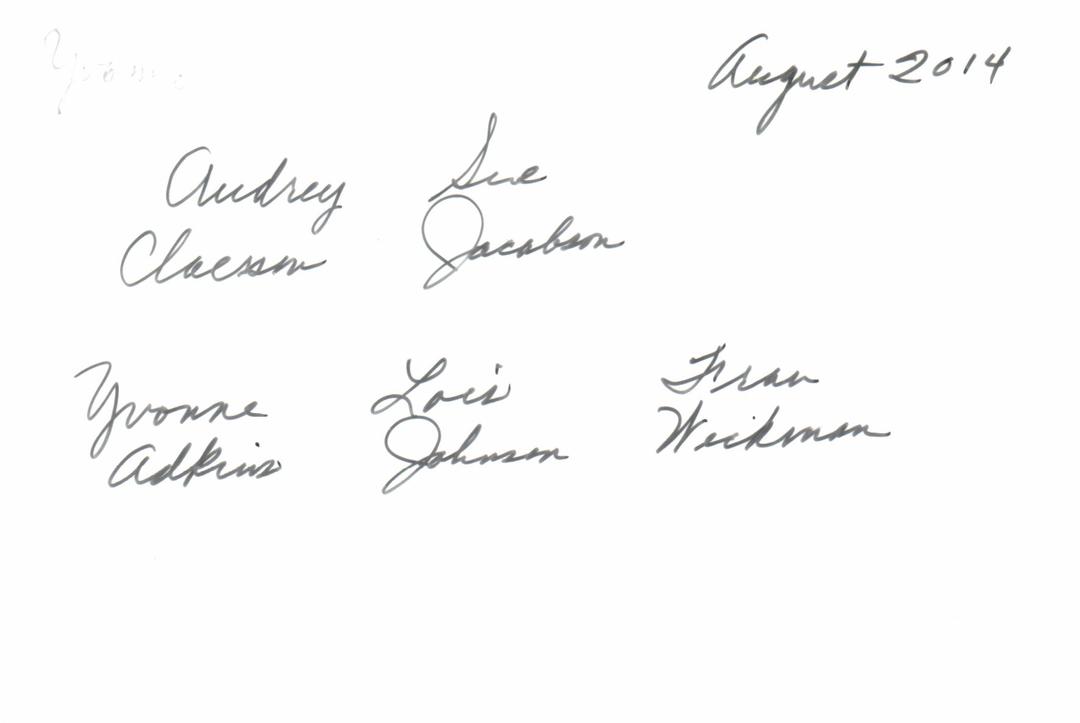 Yvonne
August 2014
Audrey Sue
Claesson Jacobson
Yvonne Lois Fran
Adkins Johnson Weikman